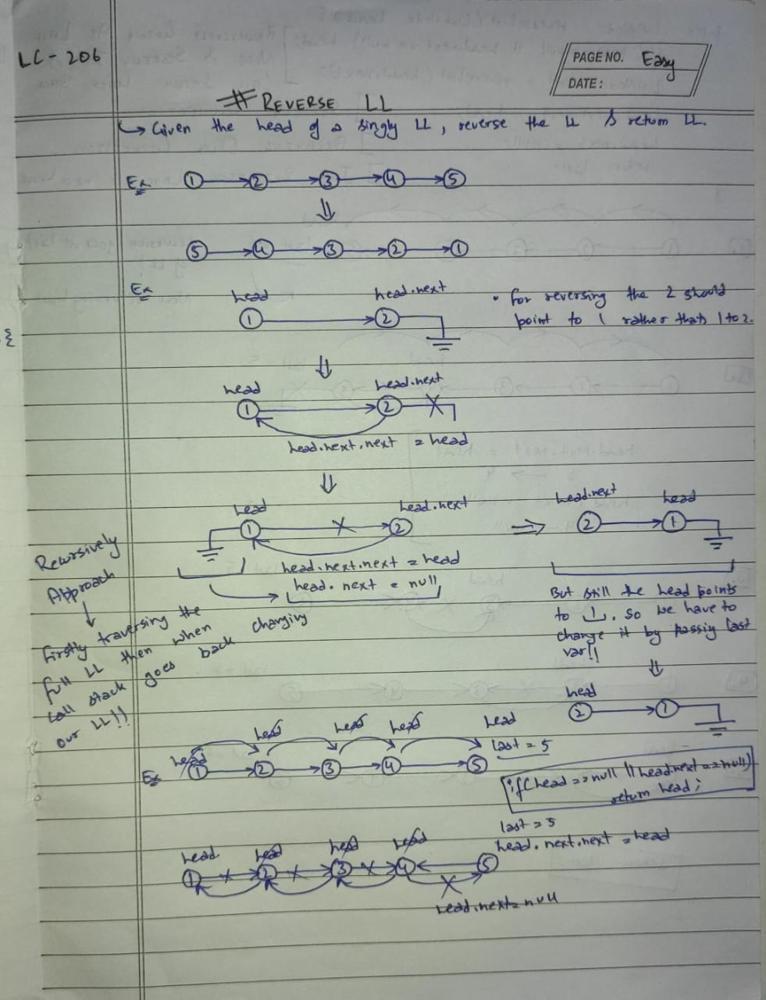 LC - 206
PAGE NO. Easy
DATE:
# REVERSE LL
↳ Given the head of a singly LL, reverse the LL & return LL.
Ex 1 → 2 → 3 → 4 → 5
⇓
5 → 4 → 3 → 2 → 1
Ex
head head.next
1 → 2
• For reversing the 2 should
point to 1 rather than 1 to 2.
⇓
head head.next
1 2
head.next.next = head
⇓
head head.next
1 2
head.next.next = head
head.next = null
⇒
head.next head
2 → 1
But still the head points
to 1. So we have to
change it by passing last
var!!
⇓
head
2 → 1
Recursively
Approach
↓
Firstly traversing the
full LL then when
call stack goes back changing
our LL!!
Ex
head head head head head
last = 5
1 → 2 → 3 → 4 → 5
if (head == null || head.next == null)
return head;
last = 5
head.next.next = head
head head head head
1 2 3 4 5
head.next = null